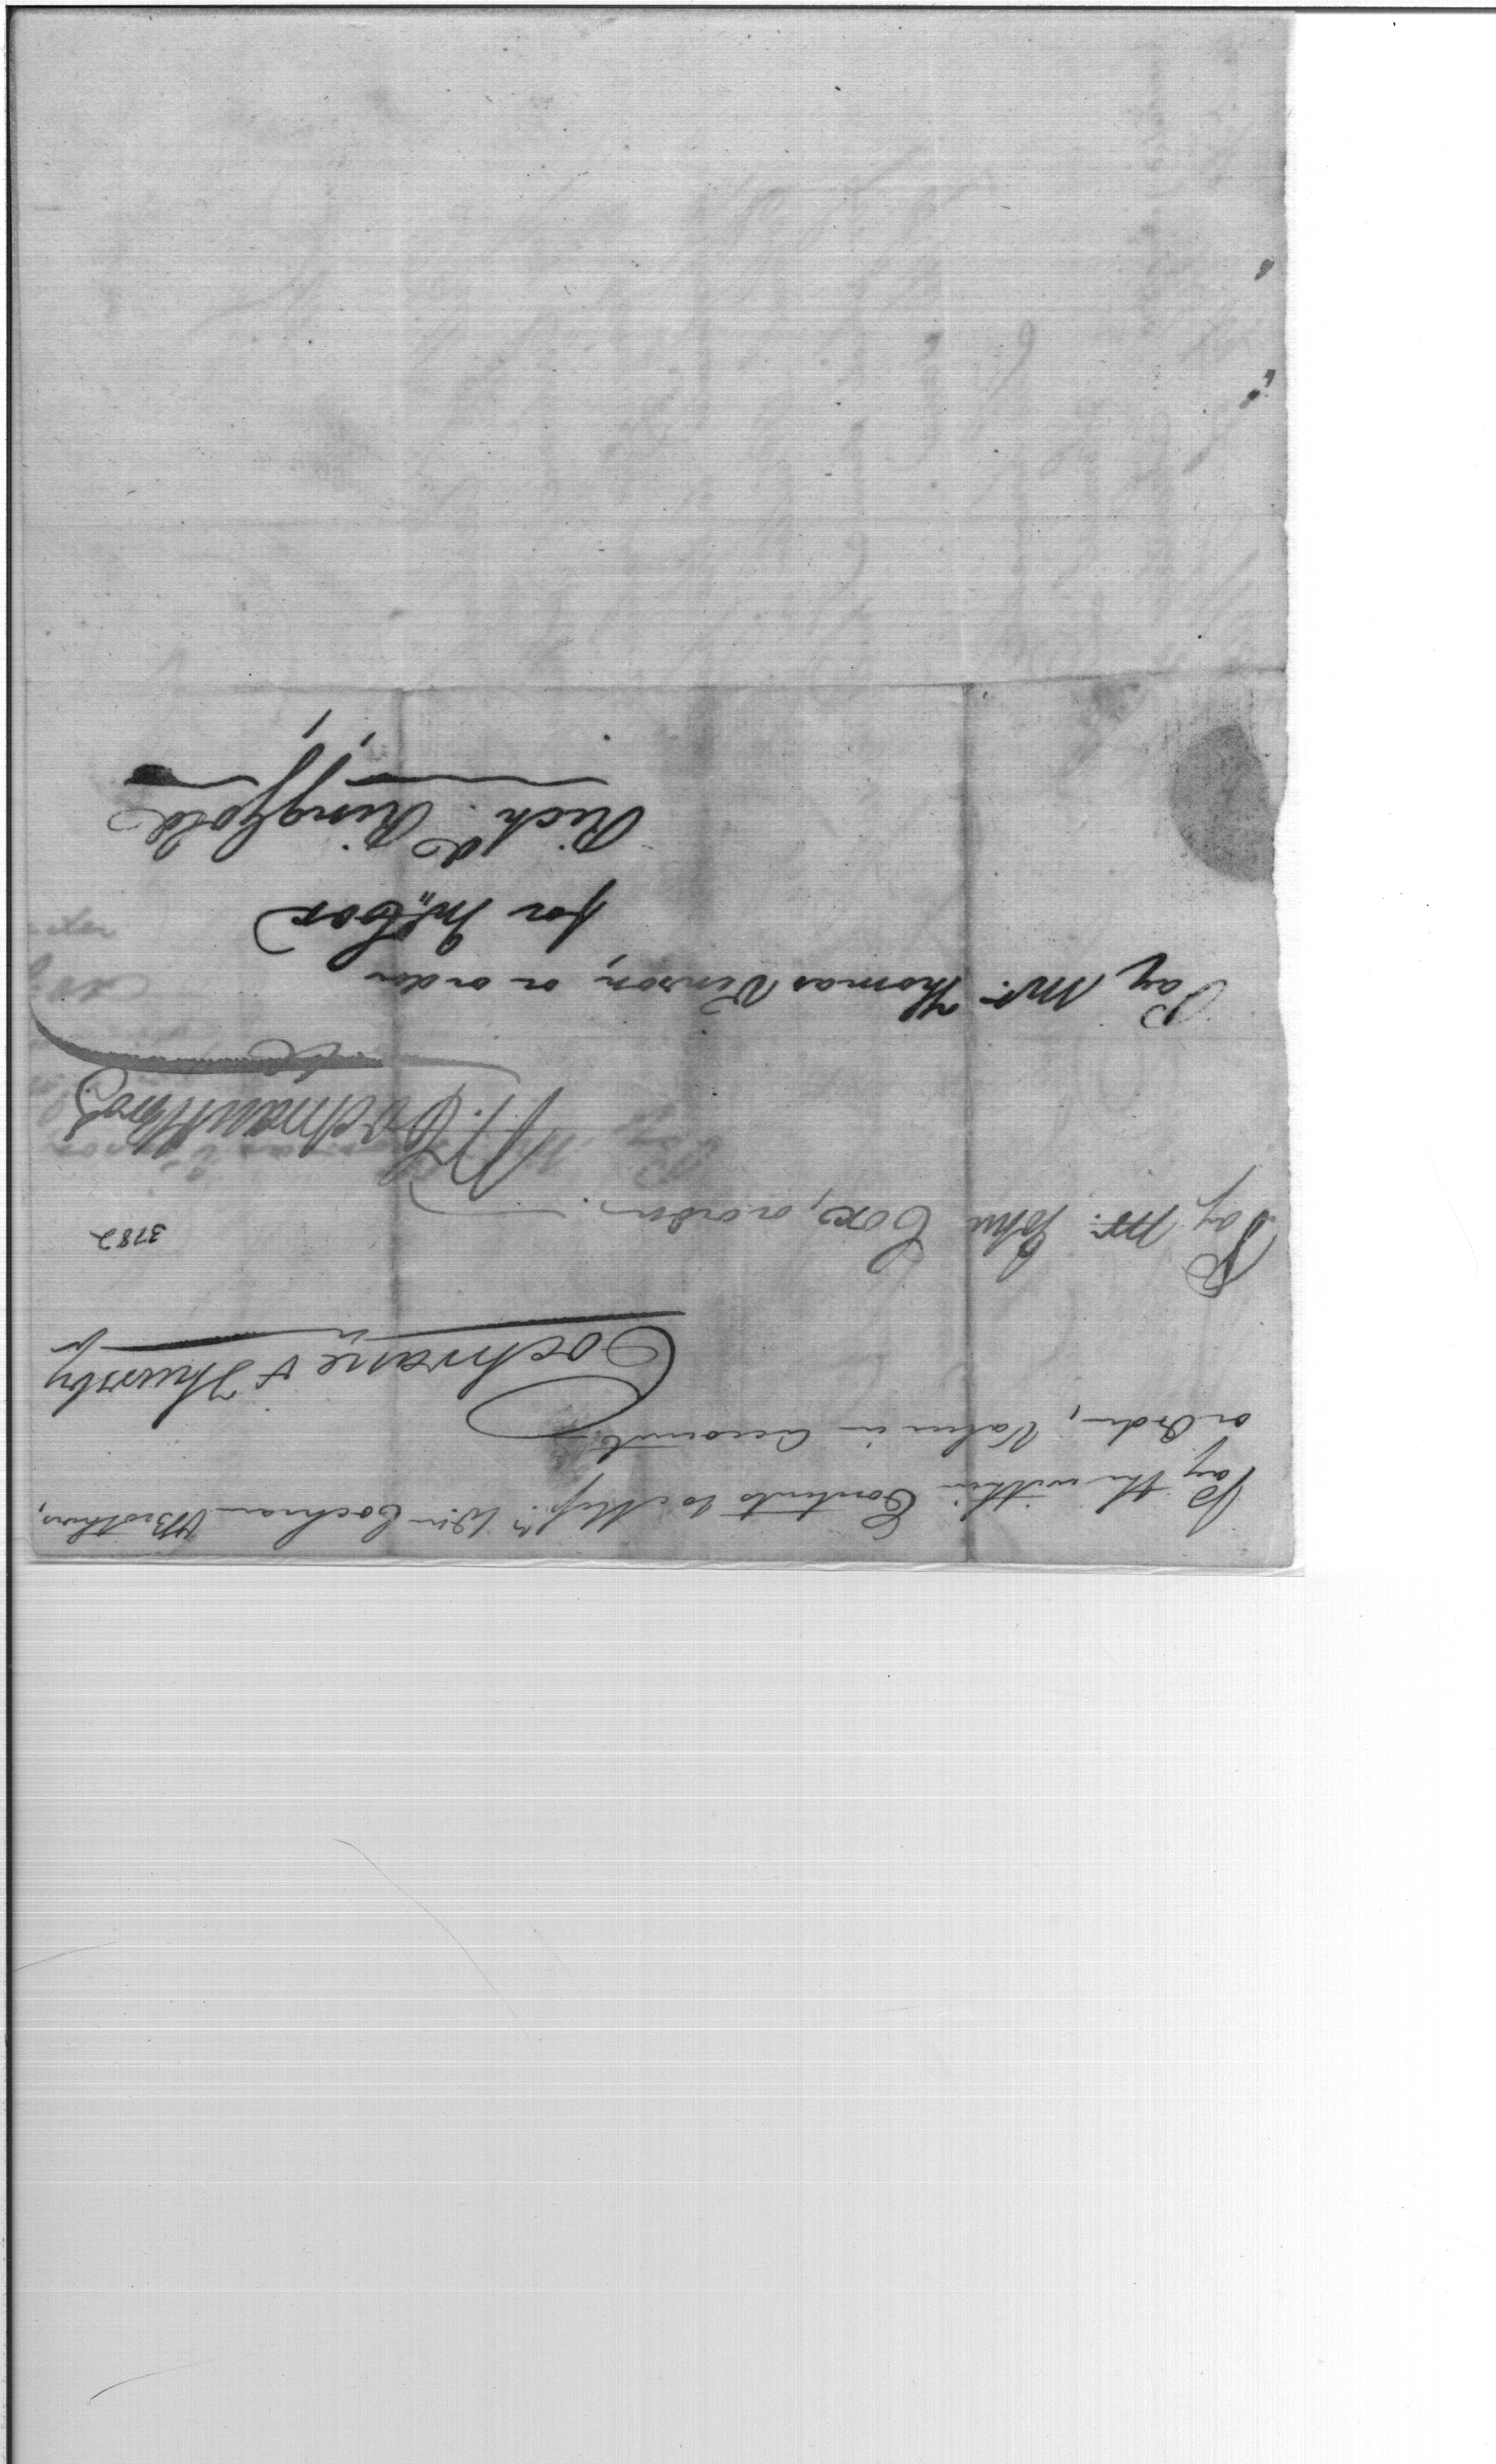 Pay the within Contents to Messrs. Wm Cochran & Brothers,
or Order, Value in Account
Cochrane & Thursby
3782
Pay Mr. John Cox, or order.
Wm. Cochran & Bros
Pay Mr. Thomas Vinson, or order
for Jno. Cox
Richd. Ringgold